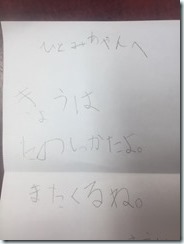 ひとみちゃんへ
きょうは
たのしかったよ。
またくるね。